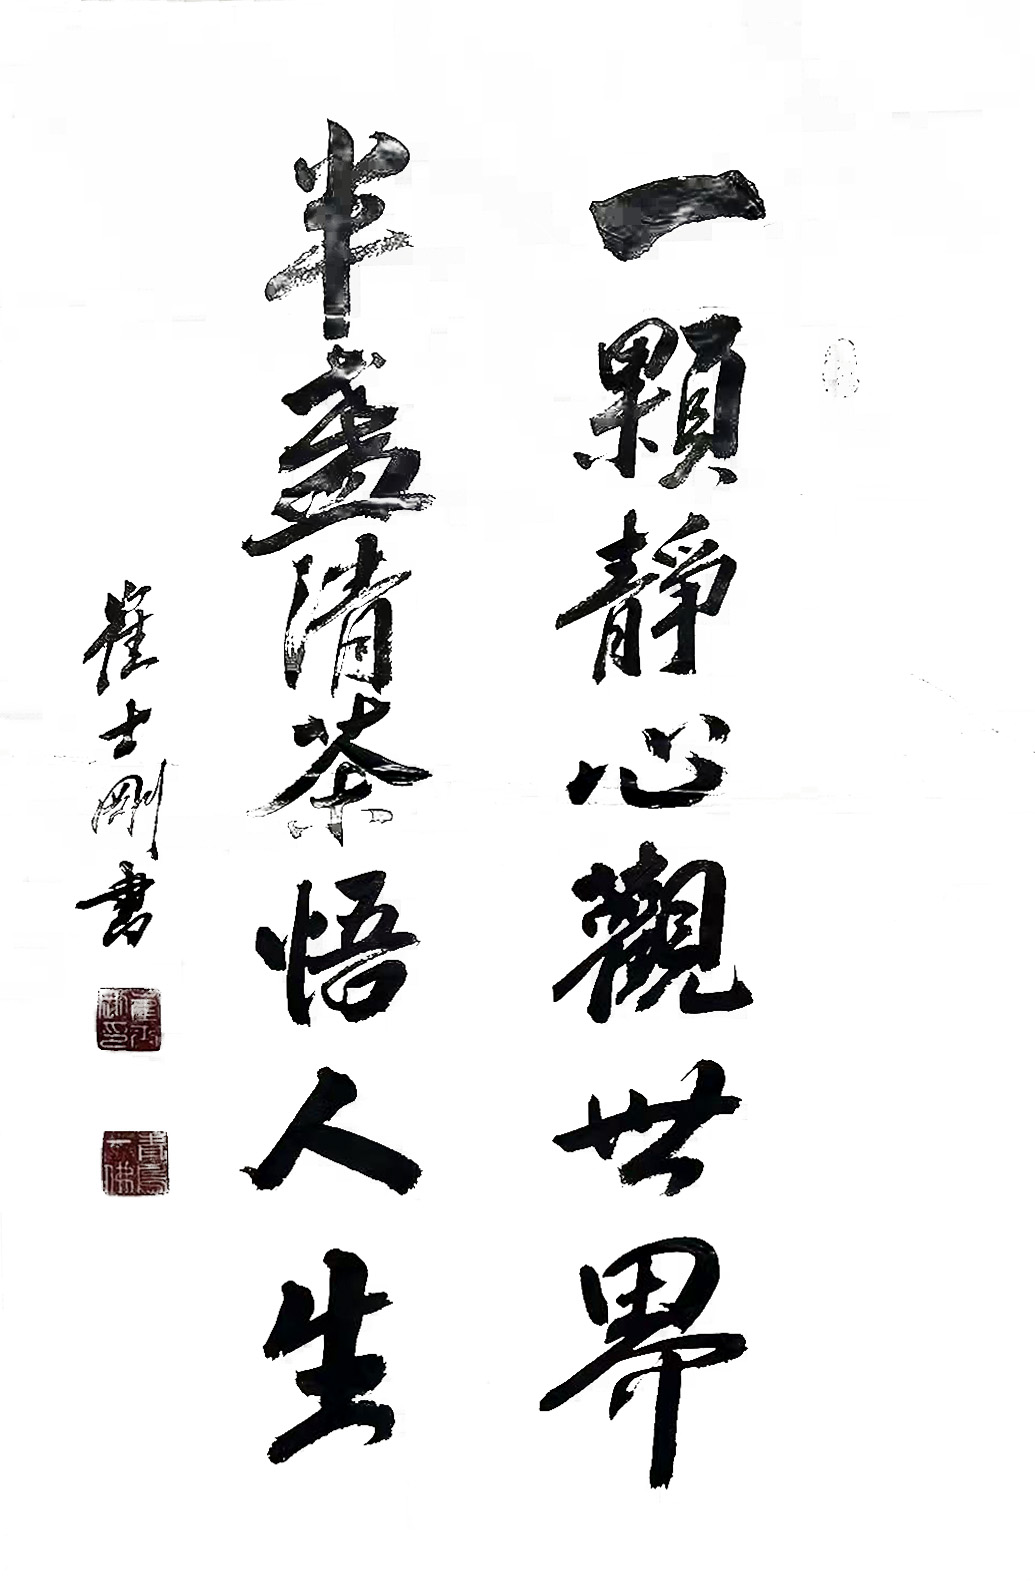 一顆靜心觀世界
半盞清茶悟人生
崔士剛書